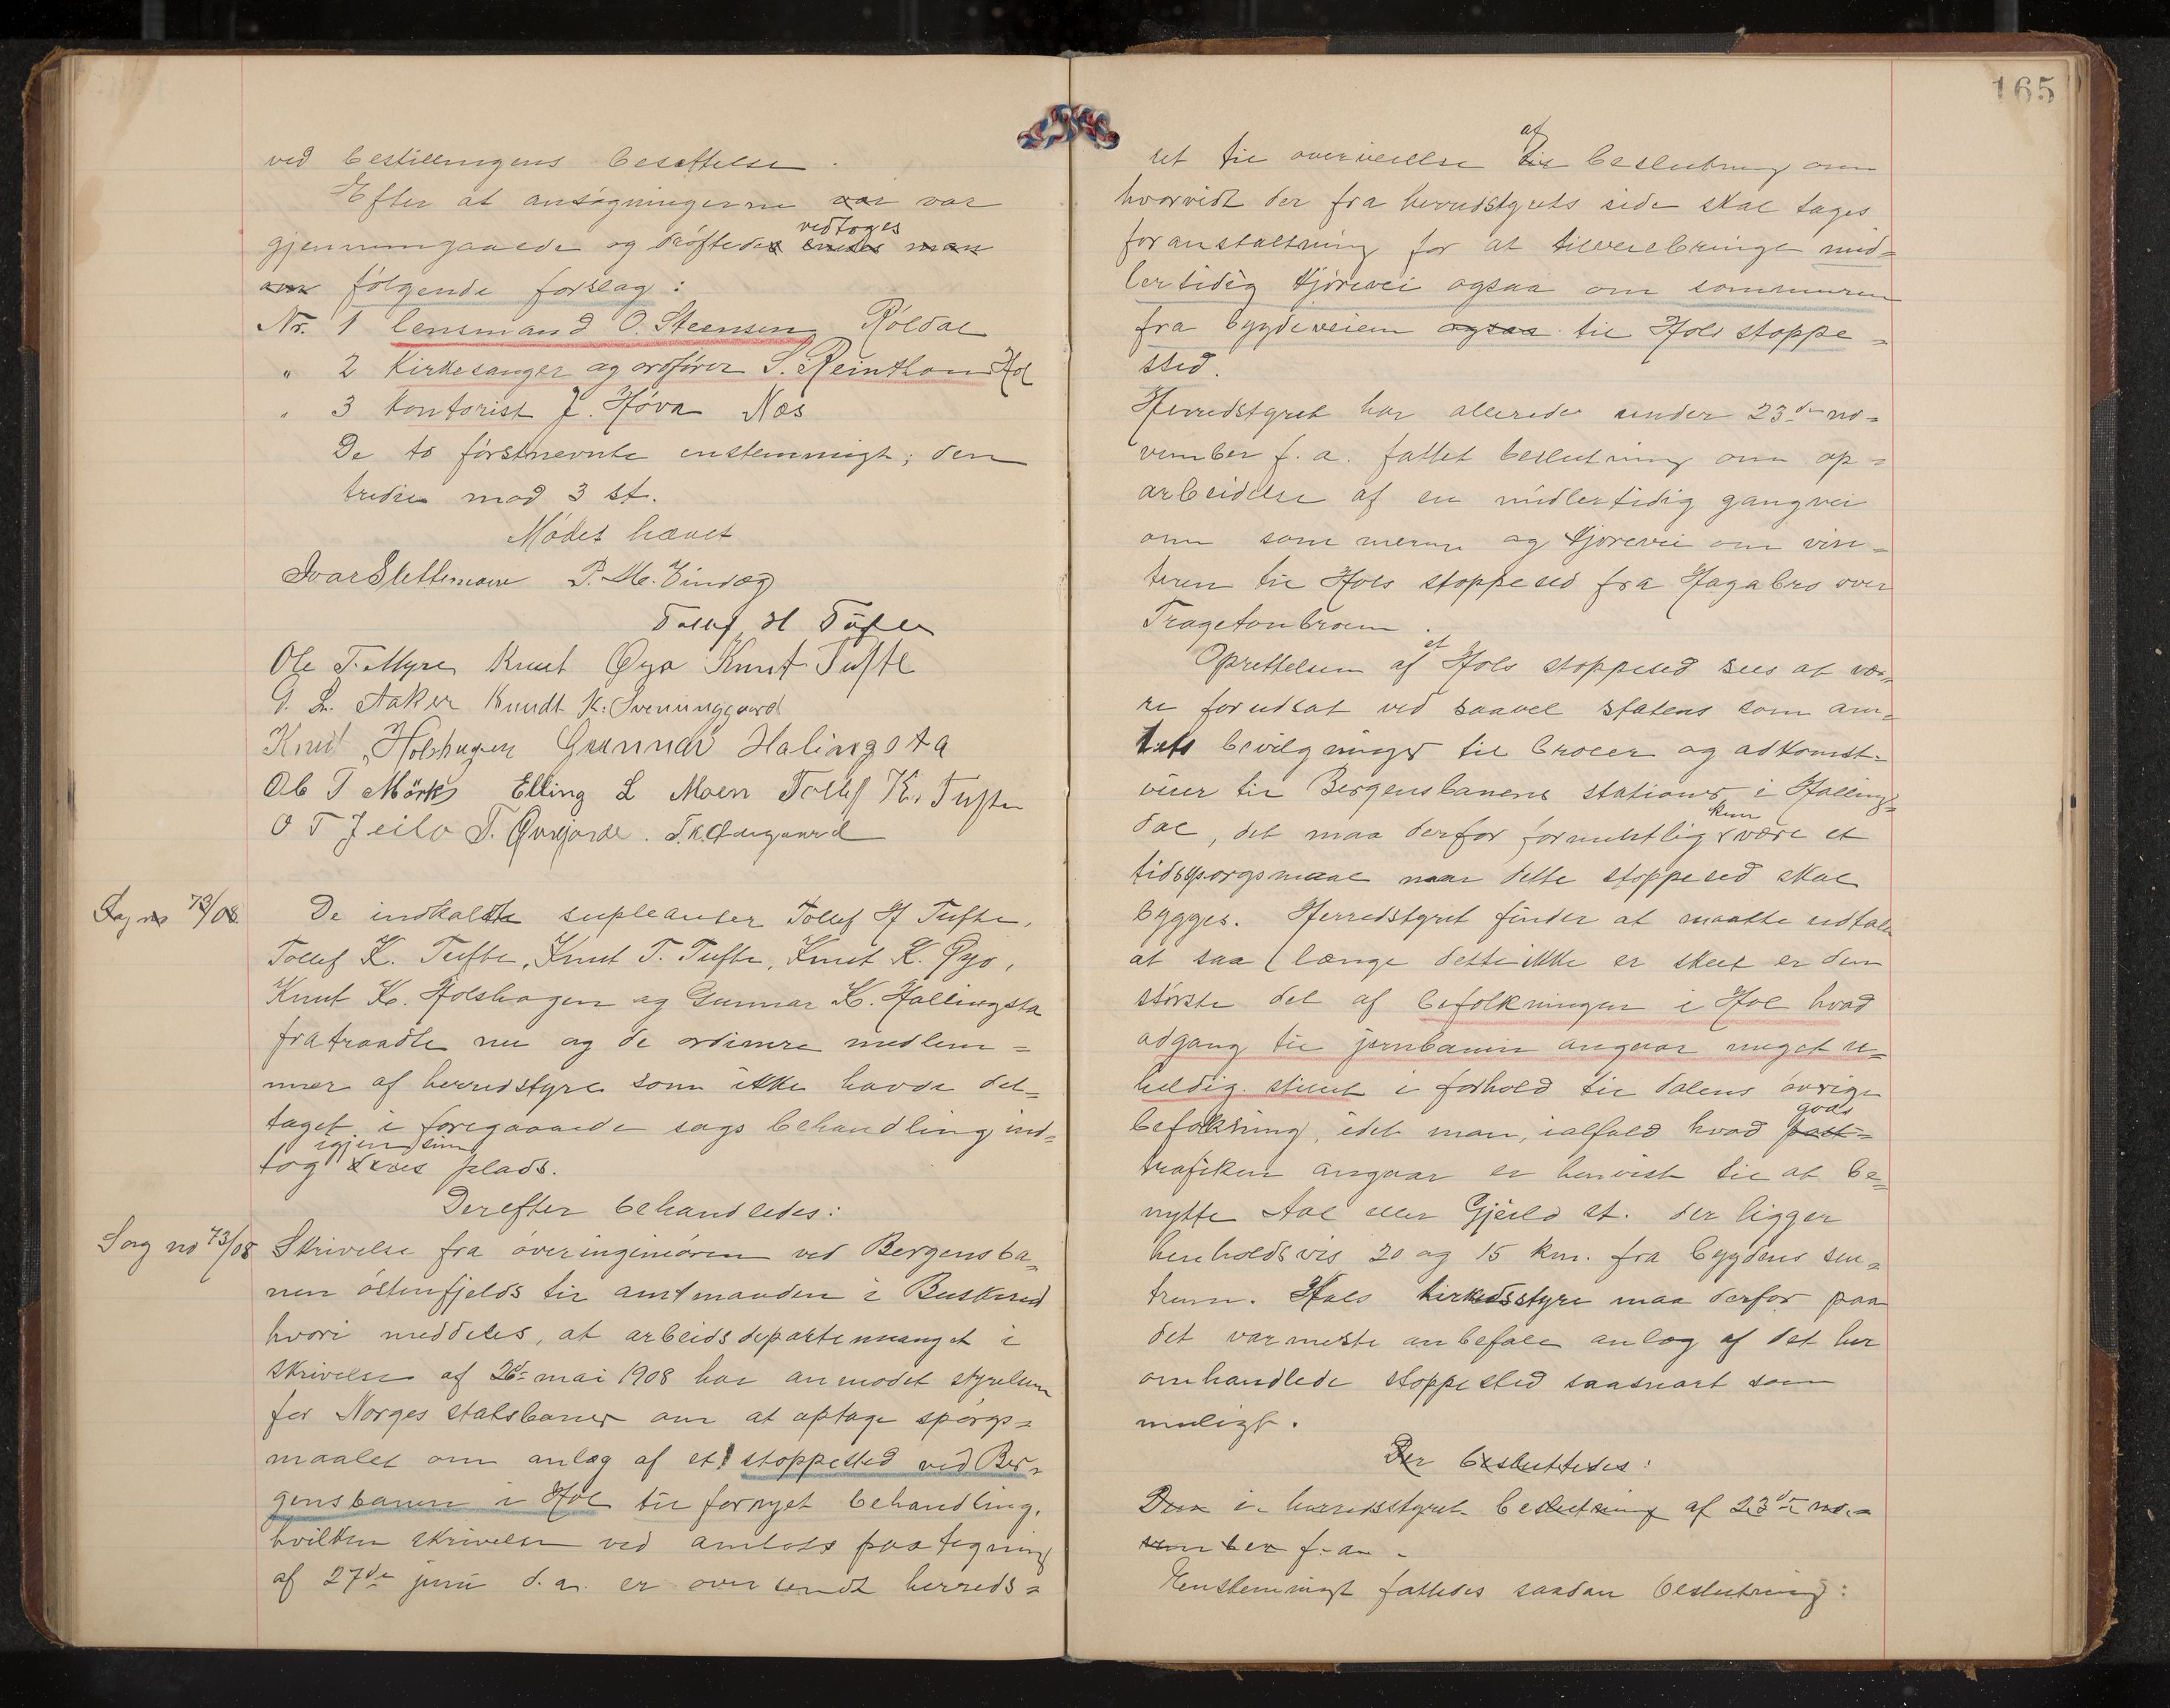 ved bestillingens besættelse.
Efter at ansøgningerne var var
gjennemgaaede og drøftedes enedes man vedtoges
om følgende forslag:
Nr. 1 lensmand O. Steensen, Røldal
" 2 Kirkesanger og ordfører S. Reinton Hol
" 3 kontorist J. Høva Næs
De to førstnevnte enstemmigt; den
tredie mod 3 st.
Mødet hævet
Ivar Slettemoen P. M.
Tollef H Tufte
Ole T. Myre Knut Øyo Knut Tufte
G. L. Aaker Knudt K. Sveninggaard
Knut Holshagen Gunnar Halingsta
Ole T Mørk Elling L Moen Tollef K. Tufte
O T Jeilo T. Øvrgarde. T. K. Ødegaard
Sag no 73/08
De indkaldte supleanter Tollef H Tufte,
Tollef K. Tufte, Knut T. Tufte, Knut K. Øyo,
Knut K. Holshagen og Gunnar K. Hallingsta
fratraadte nu og de ordinære medlem=
mer af herredstyre som ikke havde del=
taget i foregaaende sags behandling ind=
tog igjen sin plads.
Derefter behandledes:
Sag no 73/08
Skrivelse fra overingeniøren ved Bergensba=
nen østenfjelds til amtmanden i Buskerud
hvori meddeles, at arbeidsdepartemanget i
skrivelse af 26de mai 1908 har anmodet styrelsen
for Norges statsbaner om at optage spørgs=
maalet om anlæg af et stoppested ved Ber=
gensbanen i Hol til fornyet behandling,
hvilken skrivelse ved amtets paategning
af 27de juni d.a. er oversendt herreds=
165
ret til overveielse til af beslutning om
hvorvidt der fra herredstyrets side skal tages
foranstaltning for at tilveiebringe mid=
lertidig kjørevei ogsaa om sommeren
fra bygdeveien ogsaa til Hols stoppe=
sted.
Herredstyret har allerede under 23de no=
vember f.a. fattet beslutning om op=
arbeidelse af en midlertidig gangvei
om sommeren og kjørevei om vin=
teren til Hols stoppesed fra Hagabro over
Tragetonbroen.
Oprettelsen af et Hols stoppesed sees at væ=
re forudsat ved saavel statens som am=
tets bevilgninger til broer og adkomst=
veier til Bergensbanens stationer i Halling=
dal, det maa derfor formentlig kun være et
tidsspørgsmaal naar dette stoppesed skal
bygges. Herredstyret finder at maatte udtale
at saa længe dette ikke er skeet er den
største del af befolkningen i Hol hvad
adgang til jernbanen angaar meget u=
heldig stillet i forhold til dalens øvrige
befolkning, idet man, ialfald hvad post= gods
trafiken angaar er henvist til at be=
nytte Aal eller Gjeilo st. der ligger
henholdsvis 20 og 15 km. fra bygdens sen=
trum. Hols herredsstyre maa derfor paa
det varmeste anbefale anlæg af det her
omhandlede stoppested saasnart som
muligt.
Der besluttedes:
Den i herredsstyret beslutning af 23de no=
vember f. an.
Enstemmigt fattedes saadan beslutning: